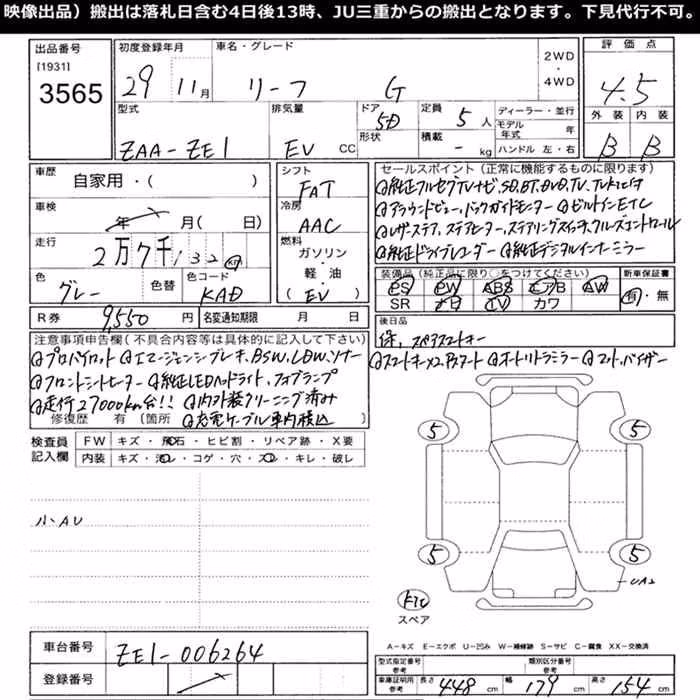 映像出品）搬出は落札日含む4日後13時、JU三重からの搬出となります。下見代行不可。
出品番号 初度登録年月 車名・グレード 2WD・4WD 評価点
[1931]
3565 29年 11月 リーフ G 4.5
型式 排気量 ドア 形状 定員 積載 ディーラー・並行 外装 内装
ZAA-ZE1 EV CC 5D 5人 - kg モデル年式 年 B B
ハンドル 左・右
車歴 自家用・( ) シフト FAT セールスポイント(正常に機能するものに限ります)
◎純正フルセグTVナビ、SD,BT,DVD,TV,
車検 年 月( 日) 冷房 AAC ◎アラウンドビュー、バックガイドモニター ◎ビルトインETC
走行 2万7千132km 燃料 ガソリン・軽油・(EV) ◎レザーステア、ステアヒーター、ステアリングスイッチ、クルーズコントロール
◎純正ドライブレコーダー ◎純正デジタルインナーミラー
色 グレー 色替 色コード KAD 装備品(純正品に限り○をつけてください) 新車保証書
PS PW ABS エアB AW 有・無
SR ナビ TV カワ
R券 9,550円 名変通知期限 月 日 後日品
保、スペアスマートキー
注意事項申告欄(不具合内容等は具体的に記入して下さい) ◎スマートキー×2,Pスタート ◎オートリトラミラー ◎マット,バイザー
◎プロパイロット ◎エマージェンシーブレーキ、BSW、LDW、ソナー
◎フロントシートヒーター ◎純正LEDヘッドライト、フォグランプ
◎走行27000km台!! ◎内外装クリーニング済み
修復歴 有 [箇所 ◎充電ケーブル車内積込
検査員記入欄 FW キズ・飛石・ヒビ割・リペア跡・X要
内装 キズ・汚レ・コゲ・穴・スレ・キレ・破レ
5 5
小、AU
5 5
UA2
スペア
車台番号 ZE1-006264
A−キズ E−エクボ U−凹み W−補修跡 S−サビ C−腐食 XX−交換済
登録番号
型式指定番号 参考 類別区分番号 参考
車庫証明用 参考 長さ 448cm 幅 179cm 高さ 154cm